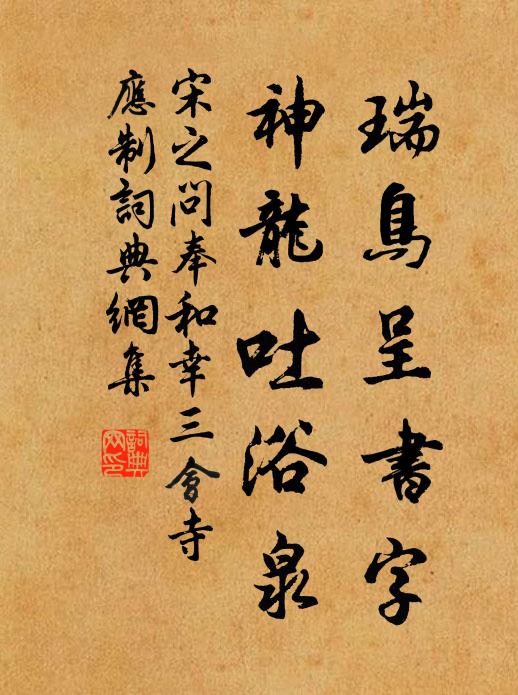 瑞鳥呈書字
神龍吐浴泉
宋之問奉和幸三會寺
應制詞典網集
詞典
网印